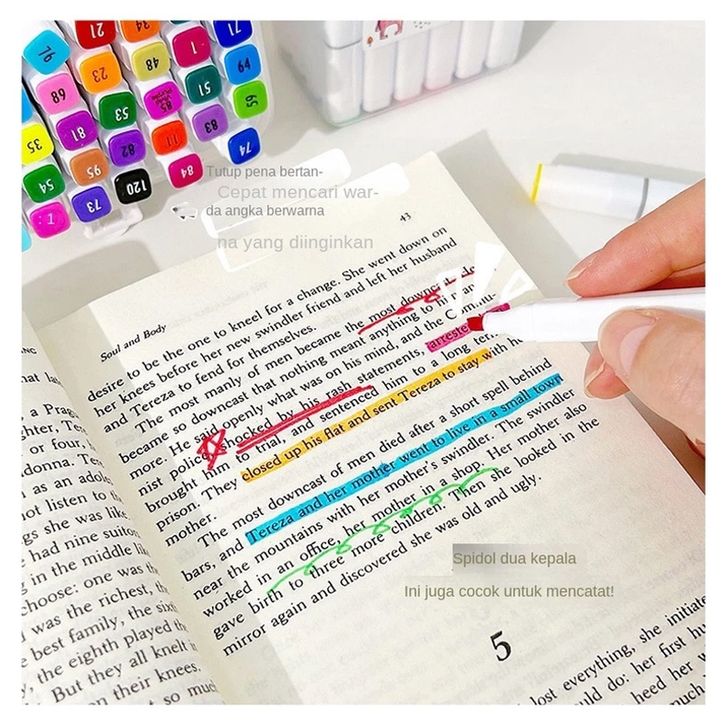 71
21
34
1
76
23
48
51
69
68
53
85
83
65
35
81
82
11
74
54
95
120
84
1
73
Tutup pena bertan-
Cepat mencari war-
da angka berwarna
na yang diinginkan
43
Soul and Body
desire to be the one to kneel for a change. She went down on
her knees before her new swindler friend and left her husband
and Tereza to fend for themselves.
The most manly of men became the most
became so downcast that nothing meant anything to
more. He said openly what was on his mind, and the
nist police, shocked by his rash statements, arreste
brought him to trial, and sentenced him to a long
prison. They closed up his flat and sent Tereza to stay with
mother.
The most downcast of men died after a short spell behind
bars, and Tereza and her mother went to live in a small town
near the mountains with her mother's swindler. The swindler
worked in an office, her mother in a shop. Her mother also
gave birth to three more children. Then she looked in the
mirror again and discovered she was old and ugly.
a Prag
or four,
donna. T
as an ado
ot listen to
gs she was like
had nine suito
g in the middle
hoose: one was th
was the richest, th
best family, the six
the eighth played th
But they all knelt
n their knees.
so muc
Spidol dua kepala
Ini juga cocok untuk mencatat!
5
lost everything, she initiate
uld do: her first hu
heed her